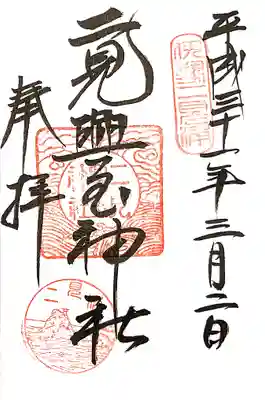 平成三十一年三月二日
伊勢二見浦
二見興玉神社
奉拝